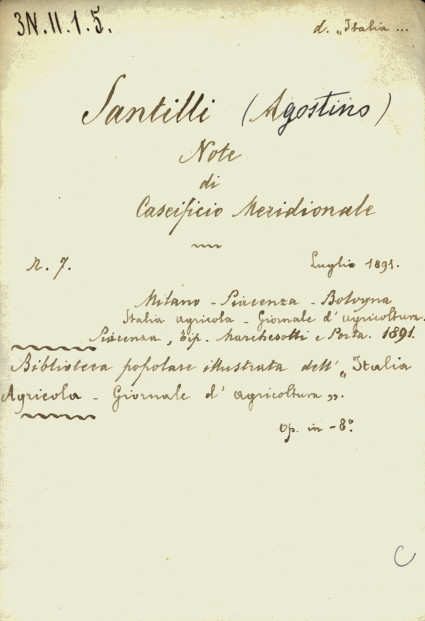 3N.II.1.5.
d. „Italia ...
Santilli (Agostino)
Note
di
Caseificio Meridionale
n. 7.
Luglio 1891.
Milano - Piacenza - Bologna
Italia agricola - Giornale d'agricoltura.
Piacenza, Tip. Marchesotti e Porta. 1891.
Biblioteca popolare illustrata dell' „Italia
Agricola - Giornale d' agricoltura „.
Op. in -8°.
C